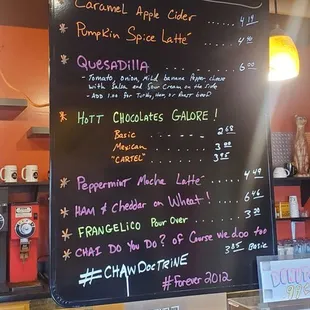 Caramel Apple Cider ..... 4.19
Pumpkin Spice Latté ..... 4.50
Quesadilla ............ 6.00
- Tomato, Onion, Mild banana Pepper, cheese
with Salsa and Sour Cream on the side
- Add 1.00 for Turkey, Ham, or Roast beef
Hott Chocolates Galore!
Basic ............ 2.68
Mexican .......... 3.00
"CARTEL" ........ 3.95
Peppermint Mocha Latté .... 4.49
Ham & Cheddar on Wheat! ... 6.46
Frangelico Pour Over ....... 3.50
Chai Do You Do? of Course We doo too
3.85 Basic
#CHAWDOCTRINE
#Forever 2012
DONUTS
99¢